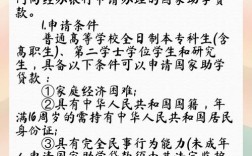 款。
1.申请条件
普通高等学校全日制本专科生(含
高职生)、第二学士学位学生和研究
生，具备以下条件可以申请国家助学
贷款：
①家庭经济困难；
②具有中华人民共和国国籍，年
满16周岁的需持有中华人民共和国居民
身份证；
③具有完全民事行为能力(未成年